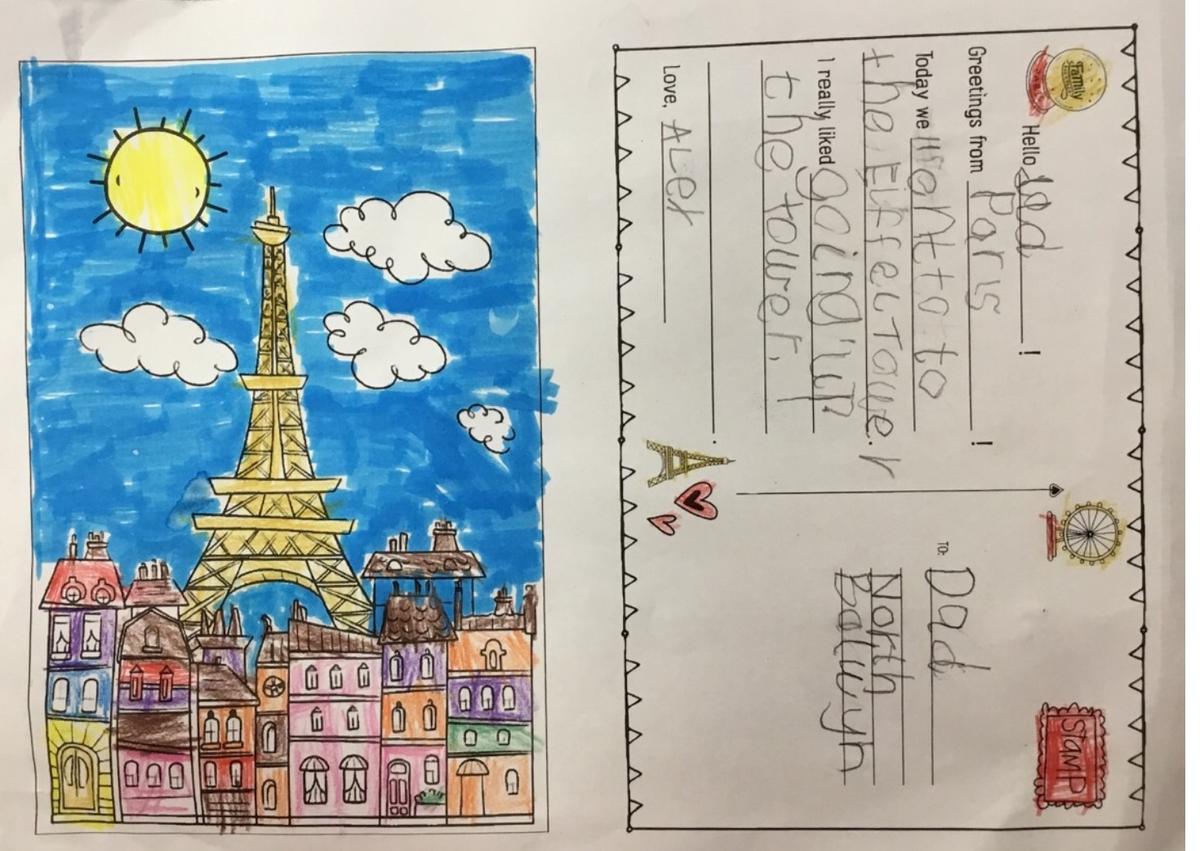 Family
Hello dad !
Greetings from Paris !
Today we went to to
the Elffel Tower. I
I really liked going up
the tower.
.
Love, Alex
TO:
Dad
North
Balwyn
STAMP